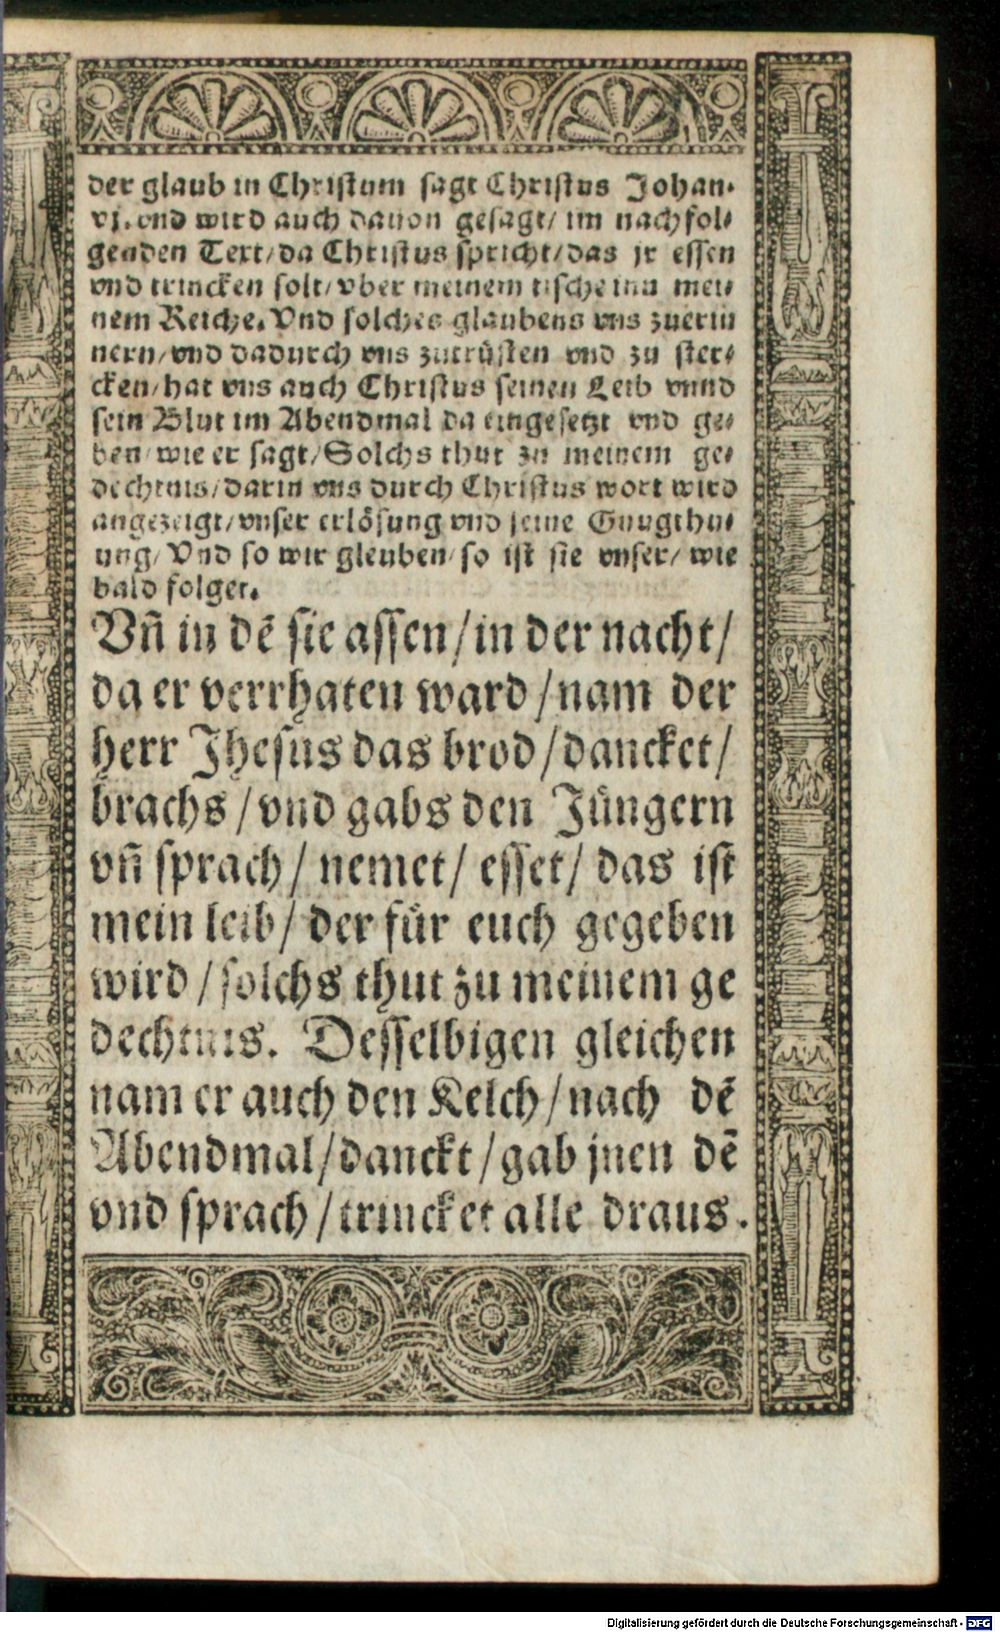 der glaub in Christum sagt Christus Johan⸗
vj. vnd wird auch dauon gesagt/ im nachfol⸗
genden Text/ da Christus spricht/ das jr essen
vnd trincken solt/ vber meinem tische inn mei⸗
nem Reiche. Vnd solches glaubens vns zuerin
nern/ vnd dadurch vns zutrüsten vnd zu ster⸗
cken/ hat vns auch Christus seinen Leib vnnd
sein Blut im Abendmal da eingesetzt vnd ge⸗
ben/ wie er sagt/ Solchs thut zu meinem ge⸗
dechtnis/ darin vns durch Christus wort wird
angezeigt/ vnser erlösung vnd seine Gnugthu⸗
ung/ Vnd so wir gleuben/ so ist sie vnser/ wie
bald folget.
Vn̄ in dē sie assen/ in der nacht/
da er verrhaten ward/ nam der
herr Jhesus das brod/ dancket/
brachs/ vnd gabs den Jüngern
vn̄ sprach/ nemet/ esset/ das ist
mein leib/ der für euch gegeben
wird/ solchs thut zu meinem ge
dechtnis. Desselbigen gleichen
nam er auch den Kelch/ nach dē
Abendmal/ danckt/ gab jnen dē
vnd sprach/ trincket alle draus.
Digitalisierung gefördert durch die Deutsche Forschungsgemeinschaft - DFG